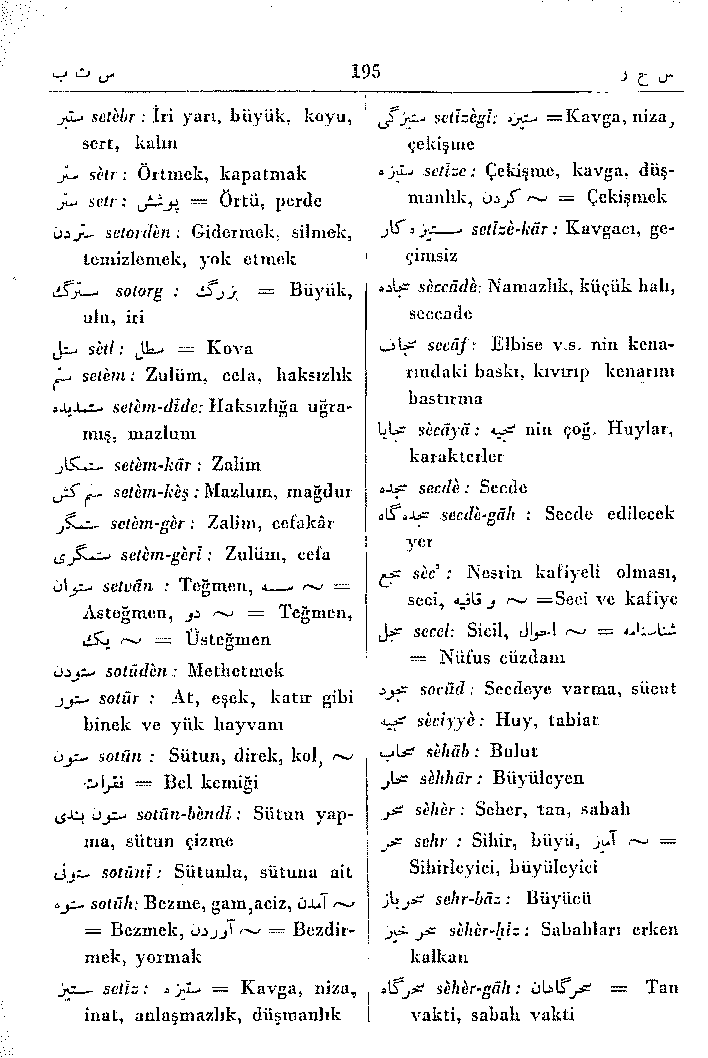 س ت ب
195
س ح ر
ستبر setèbr : İri yarı, büyük, koyu,
sert, kalın
ستر sètr : Örtmek, kapatmak
ستر setr : پوشش = Örtü, perde
ستردن setordèn : Gidermek, silmek,
temizlemek, yok etmek
سترگ sotorg : بزرگ = Büyük,
ulu, iri
ستل sètl : سطل = Kova
ستم setèm : Zulüm, cefa, haksızlık
ستمدیده setèm-dîde: Haksızlığa uğra-
mış, mazlum
ستمکار setèm-kâr : Zalim
ستم کش setèm-kèş : Mazlum, mağdur
ستمگر setèm-gèr : Zalim, cefakâr
ستمگری setèm-gèrî : Zulüm, cefa
ستوان setvân : Teğmen, سه ~ =
Asteğmen, دو ~ = Teğmen,
یک ~ = Üsteğmen
ستودن sotûdèn : Methetmek
ستور sotûr : At, eşek, katır gibi
binek ve yük hayvanı
ستون sotûn : Sütun, direk, kol, ~
فقرات = Bel kemiği
ستون بندی sotûn-bèndî : Sütun yap-
ma, sütun çizme
ستونی sotûnî : Sütunlu, sütuna ait
ستوه sotûh: Bezme, gam,aciz, آمدن ~
= Bezmek, آوردن ~ = Bezdir-
mek, yormak
ستیز setîz : ستیزه = Kavga, niza,
inat, anlaşmazlık, düşmanlık
ستیزگی setîzègî: ستیزه =Kavga, niza,
çekişme
ستیزه setîze : Çekişme, kavga, düş-
manlık, کردن ~ = Çekişmek
ستیزه کار setîzè-kâr : Kavgacı, ge-
çimsiz
سجاده sèccâdè: Namazlık, küçük halı,
seccade
سجاف secâf : Elbise v.s. nin kena-
rındaki baskı, kıvırıp kenarını
bastırma
سجایا sècâyâ : سجیه nin çoğ. Huylar,
karakterler
سجده secdè : Secde
سجده گاه secdè-gâh : Secde edilecek
yer
سجع sèc' : Nesrin kafiyeli olması,
seci, و قافیه ~ =Seci ve kafiye
سجل secel: Sicil, احوال ~ = شناسنامه
= Nüfus cüzdanı
سجود socûd : Secdeye varma, sücut
سجیه sèciyyè : Huy, tabiat
سحاب sèhâb : Bulut
سحار sèhhâr : Büyüleyen
سحر sèhèr : Seher, tan, sabah
سحر sehr : Sihir, büyü, آمیز ~ =
Sihirleyici, büyüleyici
سحرباز sehr-bâz : Büyücü
سحر خیز sèhèr-ḫîz : Sabahları erken
kalkan
سحرگاه sèhèr-gâh : سحرگاهان = Tan
vakti, sabah vakti